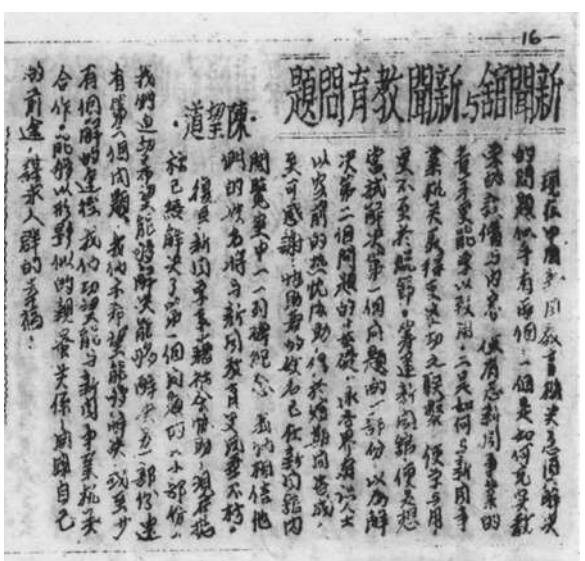 16
新聞舘与新聞教育問題
·陳望道·
現在中國新闻教育機关急須解决
的問題似乎有两個:一個是如何充实教
学的設備与内容,使有志新闻事業的
青年更能学以致用;二是如何与新闻事
業机关取得更密切之联繫,使学与用
更不至於脱節。筹建新闻舘,便是想
嘗試解决第一個问題的一部份,以为解
决第二個问題的基礎。承各界有识人士
以空前的热忱相助,得於短期间告成,
至可感谢。助募者的姓名已在新闻舘内
閲覧室中一一刻碑纪念,我们相信他
们的姓名将与新闻教育更同垂不朽。
復旦新闻系
已經解决了第一個问題的一小部份,
我們迫切希望能够解决另一部份,还
有第二個问題,我们希望能够解决,或至少
有個解的连接,我们切望能与新闻事業机关
合作,能够以形影似的親密关係,開闢自己
的前途,謀求人群的幸福!